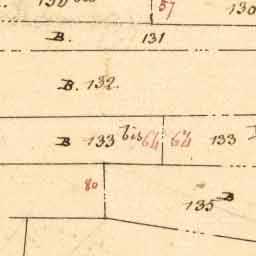 57 130
B. 131
B. 132.
B 133 bis 64 64 133
80
135 B